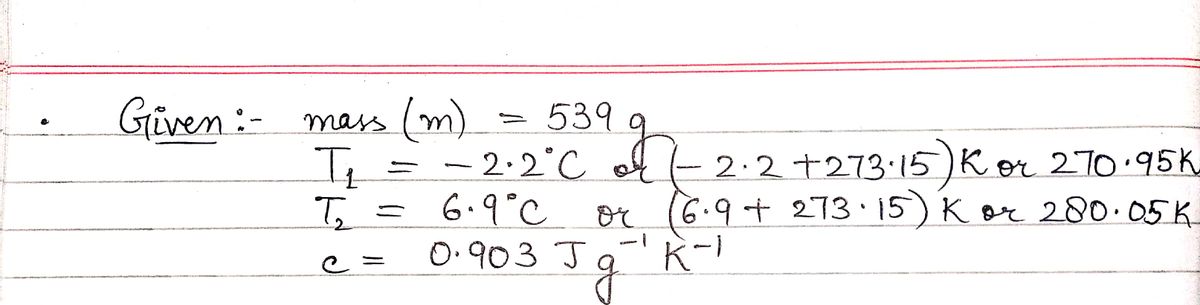 • Given :- mass (m) = 539 g
T₁ = - 2.2°C or (- 2.2 + 273.15) K or 270.95K
T₂ = 6.9°C or (6.9 + 273.15) K or 280.05K
c = 0.903 J g⁻¹ K⁻¹